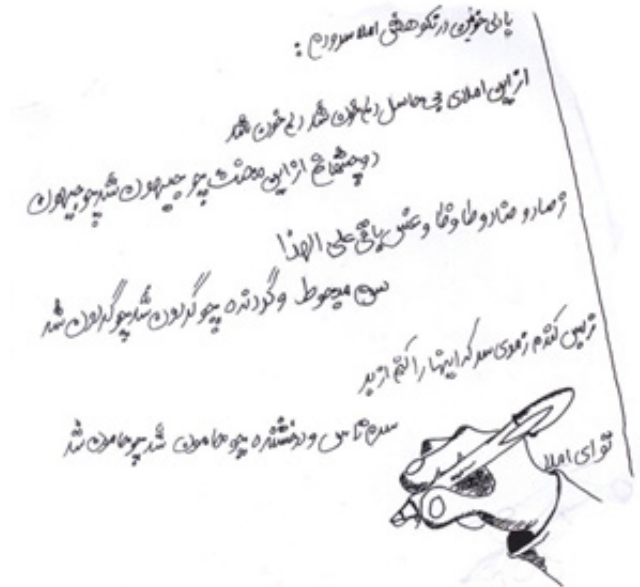 با دلی خونین در نکوهش املا سرودم :
از این املای بی حاسل دلم خون شد دلم خون شد
دو چشمانم از این محنت چو جیهون شد چو جیهون
ز صاد و ضاد و طا و ظا و عین باقی علی الهذا
سرم میحوط و گردنده چو گردون شد چو گردون شد
ز بس کندم ز موی سر که اینها را کنم از بر
سرم تاس و درخشنده چو هامون شد چو هامون شد
تو ای املا